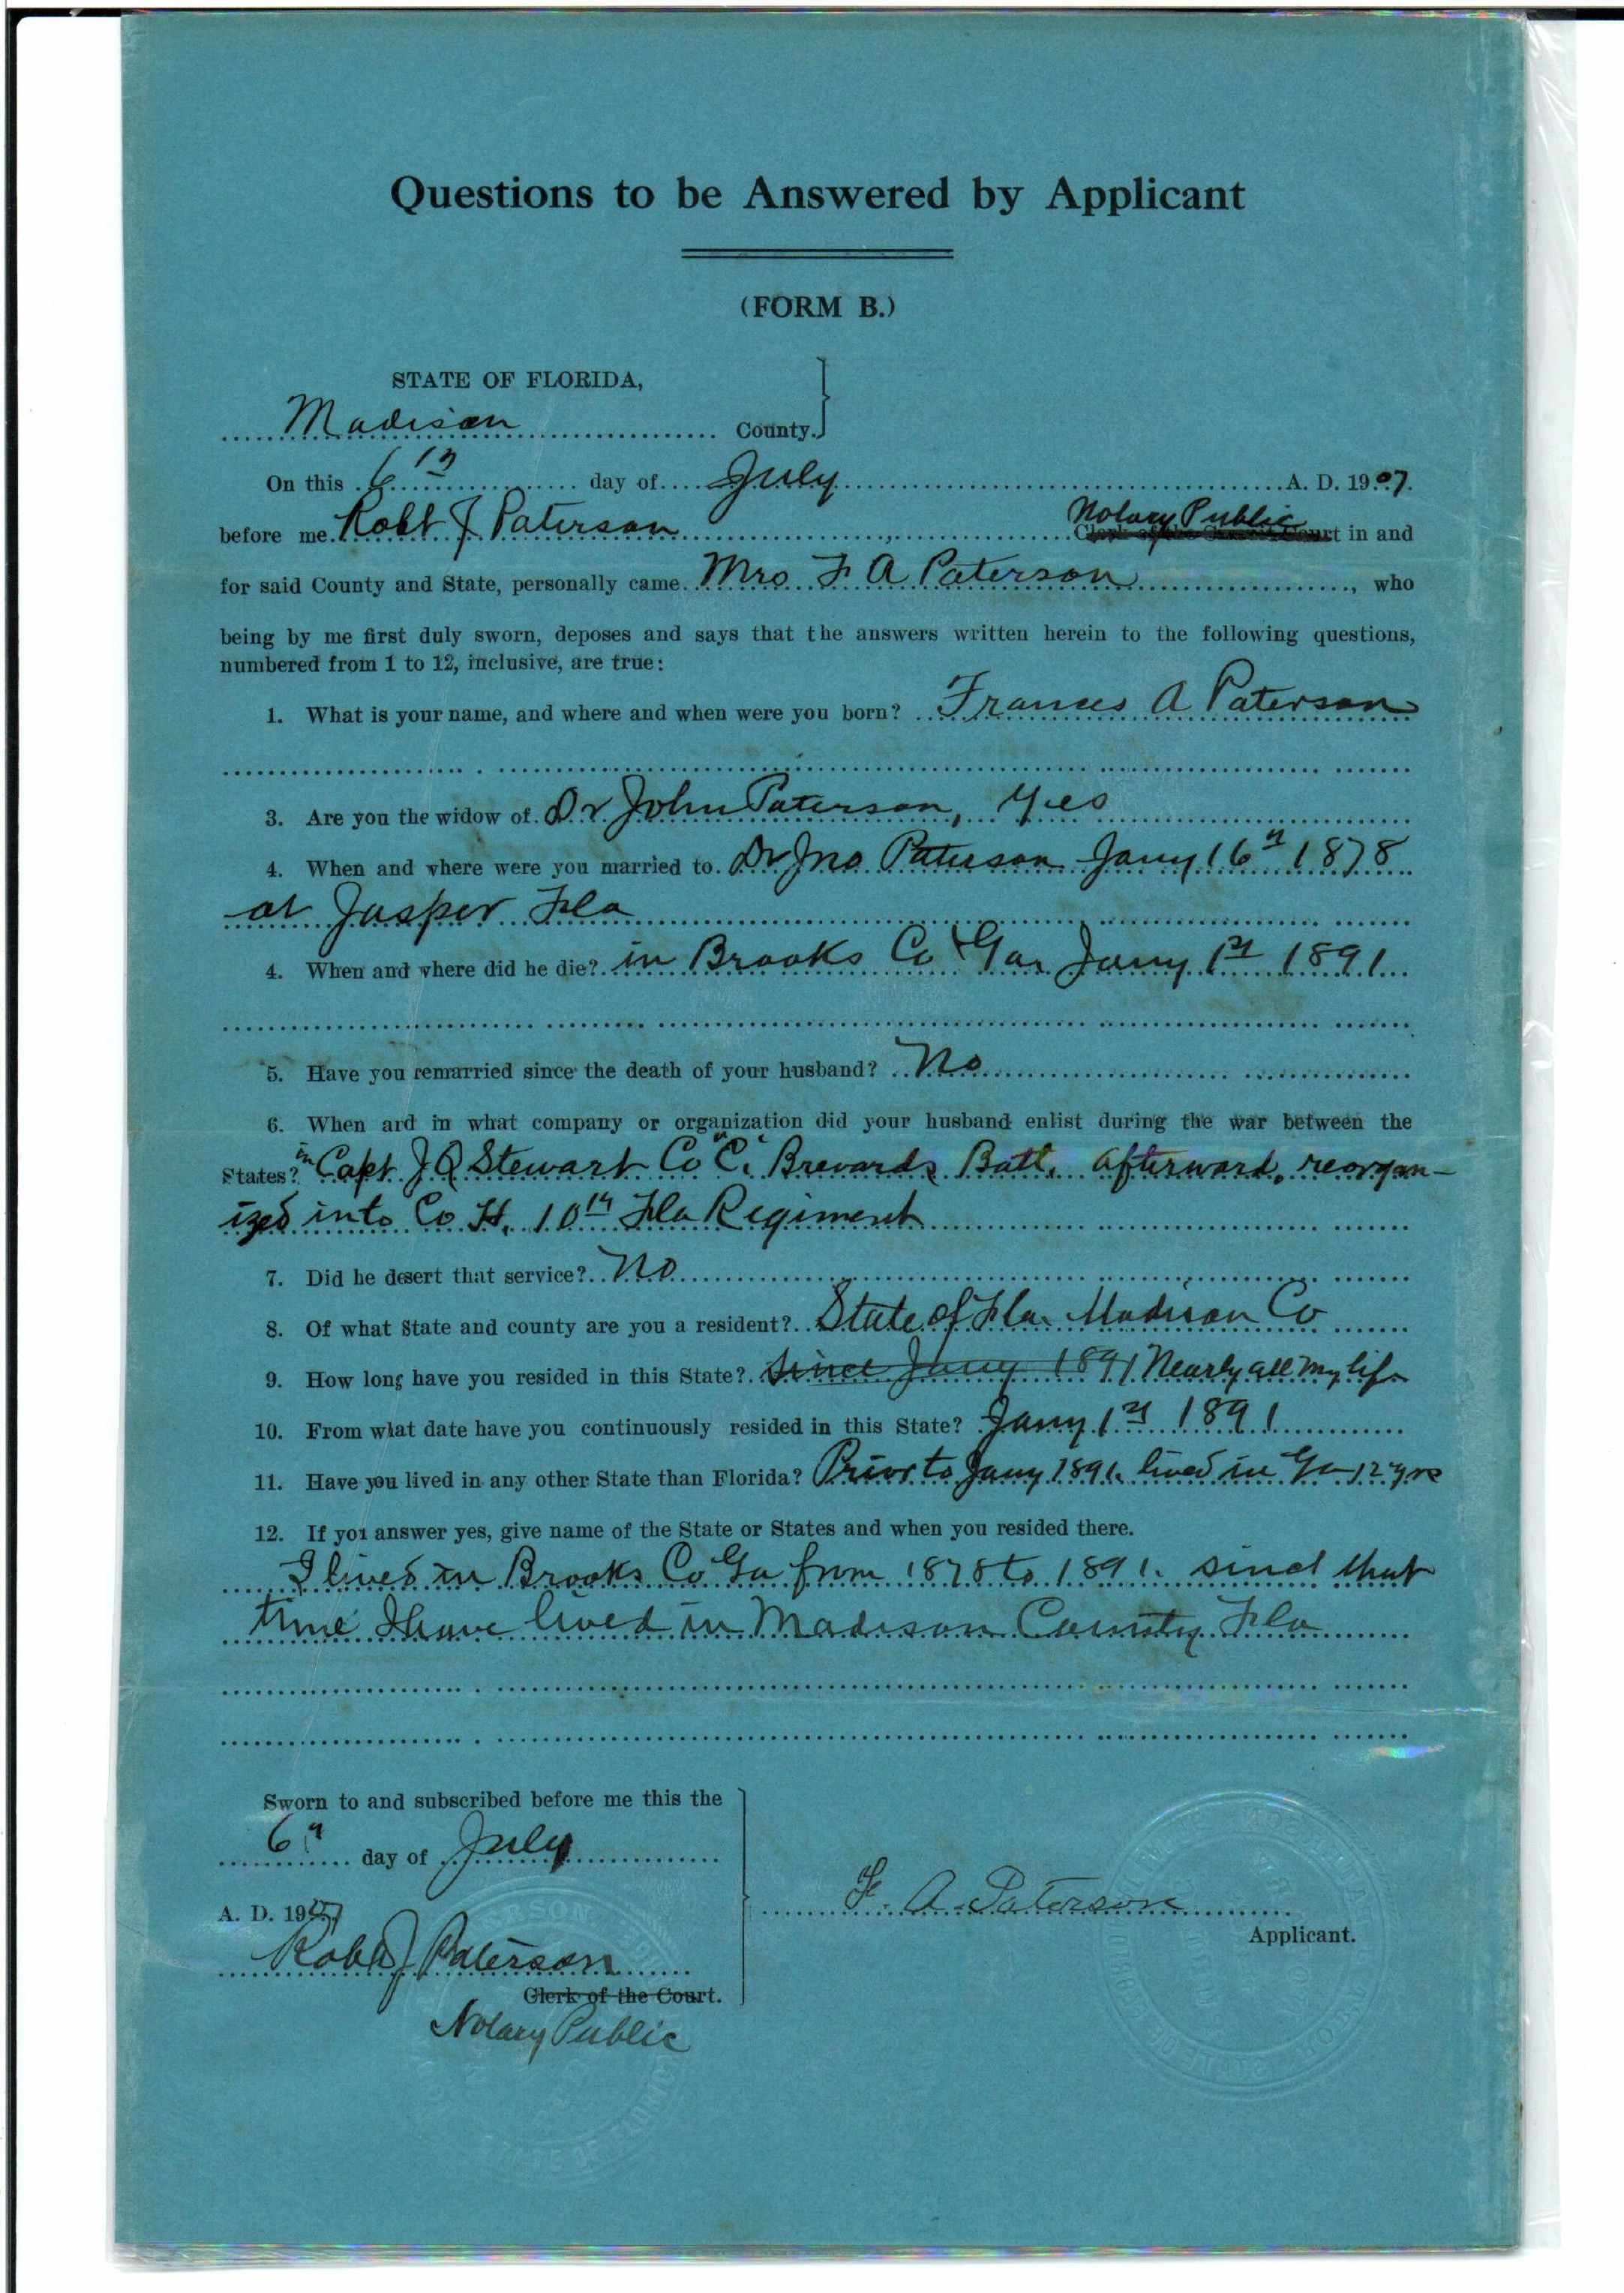 Questions to be Answered by Applicant
(FORM B.)
STATE OF FLORIDA,
Madison County.
On this 6th day of July A. D. 1907.
before me Robt J Paterson Notary Public Clerk of the Circuit Court in and
for said County and State, personally came Mrs F A Paterson, who
being by me first duly sworn, deposes and says that the answers written herein to the following questions,
numbered from 1 to 12, inclusive, are true:
1. What is your name, and where and when were you born? Frances A Paterson
3. Are you the widow of Dr John Paterson, Yes
4. When and where were you married to Dr Jno Paterson Jany 16th 1878
at Jasper Fla
4. When and where did he die? in Brooks Co Ga Jany 1st 1891
5. Have you remarried since the death of your husband? No
6. When and in what company or organization did your husband enlist during the war between the
States? in Capt J Q Stewart Co "C" Brevards Batt. afterward, reorgan-
ized into Co H, 10th Fla Regiment
7. Did he desert that service? No
8. Of what State and county are you a resident? State of Fla. Madison Co
9. How long have you resided in this State? Since Jany 1891 Nearly all my life
10. From what date have you continuously resided in this State? Jany 1st 1891
11. Have you lived in any other State than Florida? Prior to Jany 1891 lived in Ga 12 yrs
12. If you answer yes, give name of the State or States and when you resided there.
I lived in Brooks Co Ga from 1878 to 1891. since that
time I have lived in Madison County Fla
Sworn to and subscribed before me this the
6th day of July
A. D. 1907
F. A. Paterson
Applicant.
Robt J Paterson
Clerk of the Court.
Notary Public